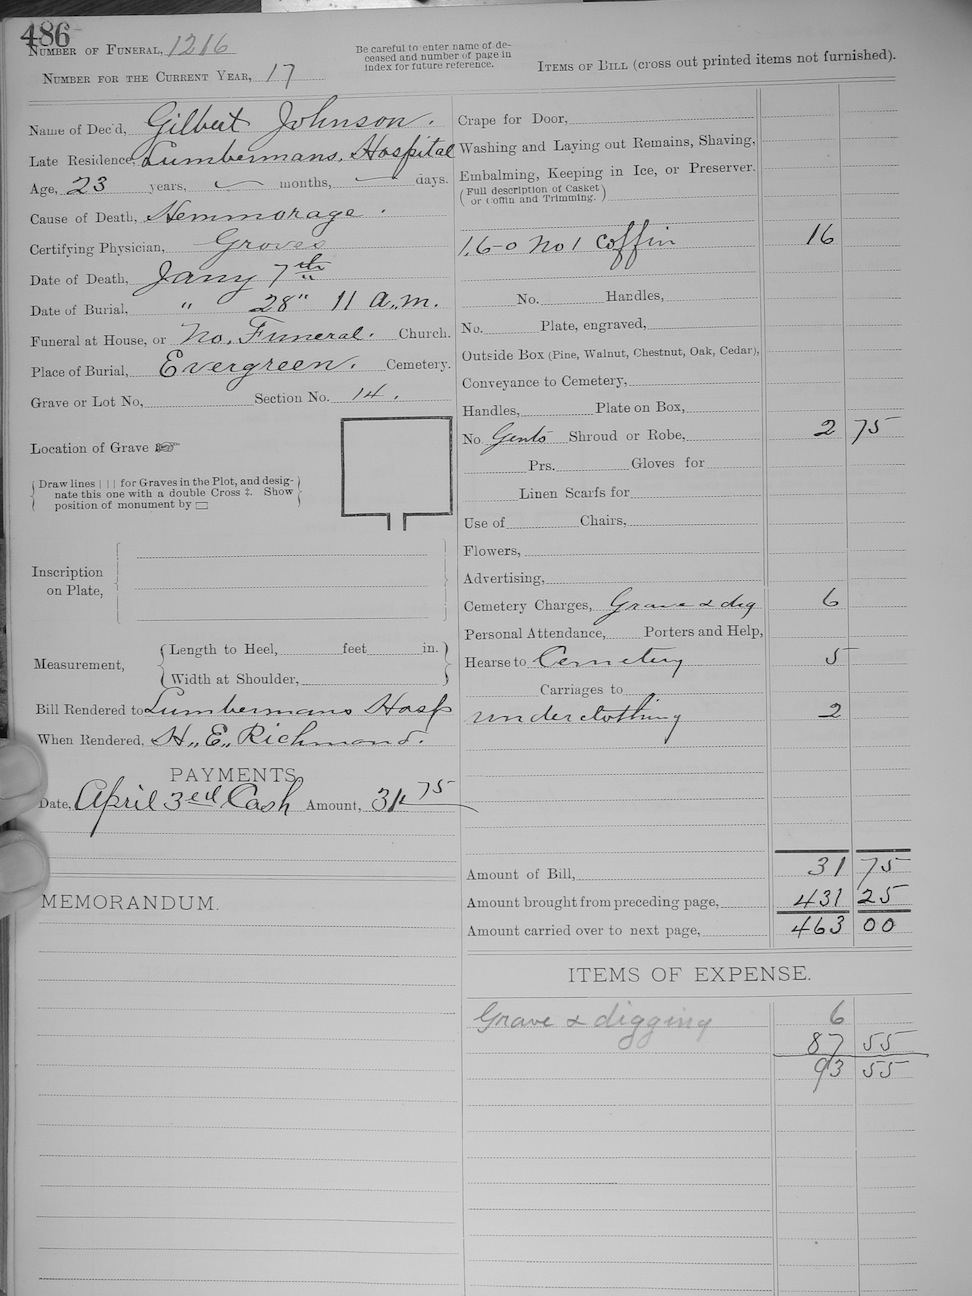 486
Number of Funeral, 1216
Number for the Current Year, 17
Be careful to enter name of de-
ceased and number of page in
index for future reference.
Items of Bill (cross out printed items not furnished).
Name of Dec'd, Gilbert Johnson.
Late Residence, Lumbermans, Hospital
Age, 23 years, months, days.
Cause of Death, Hemmorage.
Certifying Physician, Groves
Date of Death, Jany 7th
Date of Burial, " 28" 11 a.m.
Funeral at House, or No. Funeral. Church.
Place of Burial, Evergreen. Cemetery.
Grave or Lot No, Section No. 14.
Location of Grave ☞
(Draw lines | | | for Graves in the Plot, and desig-
nate this one with a double Cross ‡. Show
position of monument by ▭)
Inscription
on Plate,
Measurement,
Length to Heel, feet in.
Width at Shoulder,
Bill Rendered to Lumbermans Hosp
When Rendered, H.. E.. Richmond.
PAYMENTS
Date, April 3ed Cash Amount, 31 75
MEMORANDUM.
Crape for Door,
Washing and Laying out Remains, Shaving,
Embalming, Keeping in Ice, or Preserver.
(Full description of Casket
or Coffin and Trimming.)
1.6-0 No 1 Coffin 16
No. Handles,
No. Plate, engraved,
Outside Box (Pine, Walnut, Chestnut, Oak, Cedar),
Conveyance to Cemetery,
Handles, Plate on Box,
No. Gents Shroud or Robe, 2 75
Prs. Gloves for
Linen Scarfs for
Use of Chairs,
Flowers,
Advertising,
Cemetery Charges, Grave & dig 6
Personal Attendance, Porters and Help,
Hearse to Cemetery 5
Carriages to
underclothing 2
Amount of Bill, 31 75
Amount brought from preceding page, 431 25
Amount carried over to next page, 463 00
ITEMS OF EXPENSE.
Grave & digging 6
87 55
93 55